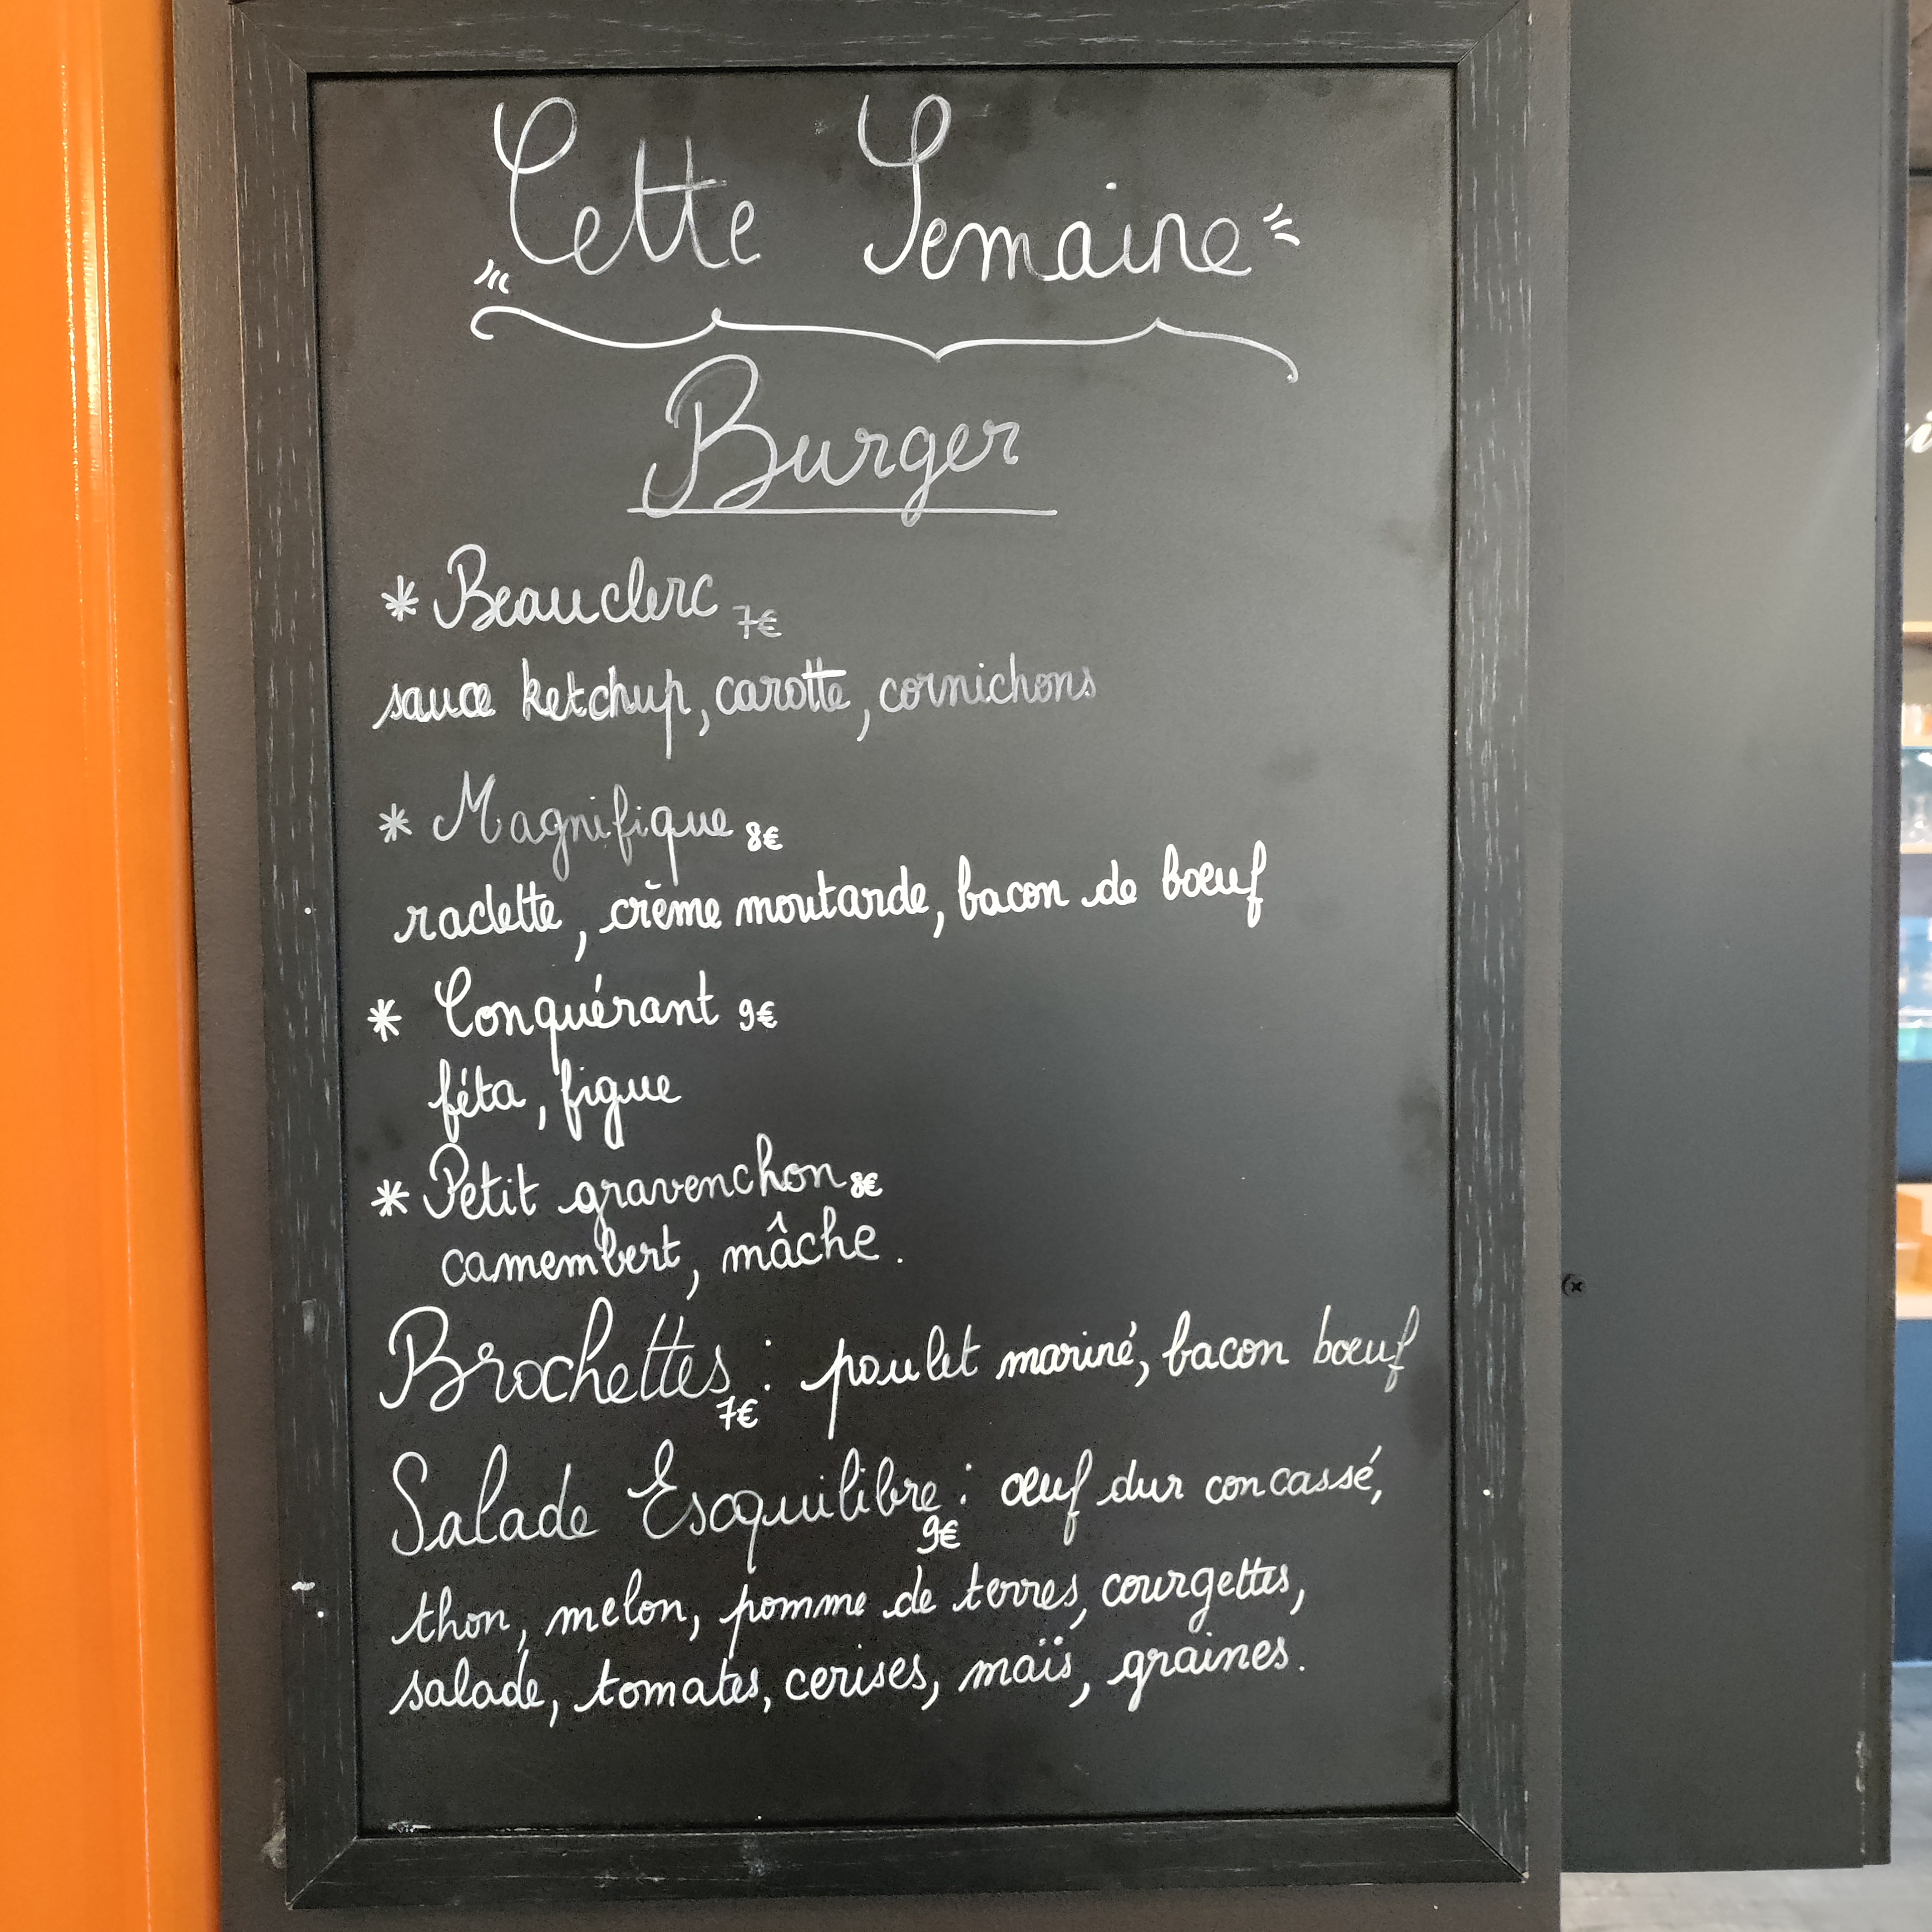 Cette Semaine
Burger
* Beauclerc 7€
sauce ketchup, carotte, cornichons
* Magnifique 8€
raclette, crème moutarde, bacon de bœuf
* Conquérant 9€
féta, figue
* Petit gravenchon 8€
camembert, mâche.
Brochettes : poulet mariné, bacon bœuf
7€
Salade Esquilibre : œuf dur concassé,
9€
thon, melon, pomme de terres, courgettes,
salade, tomates, cerises, maïs, graines.